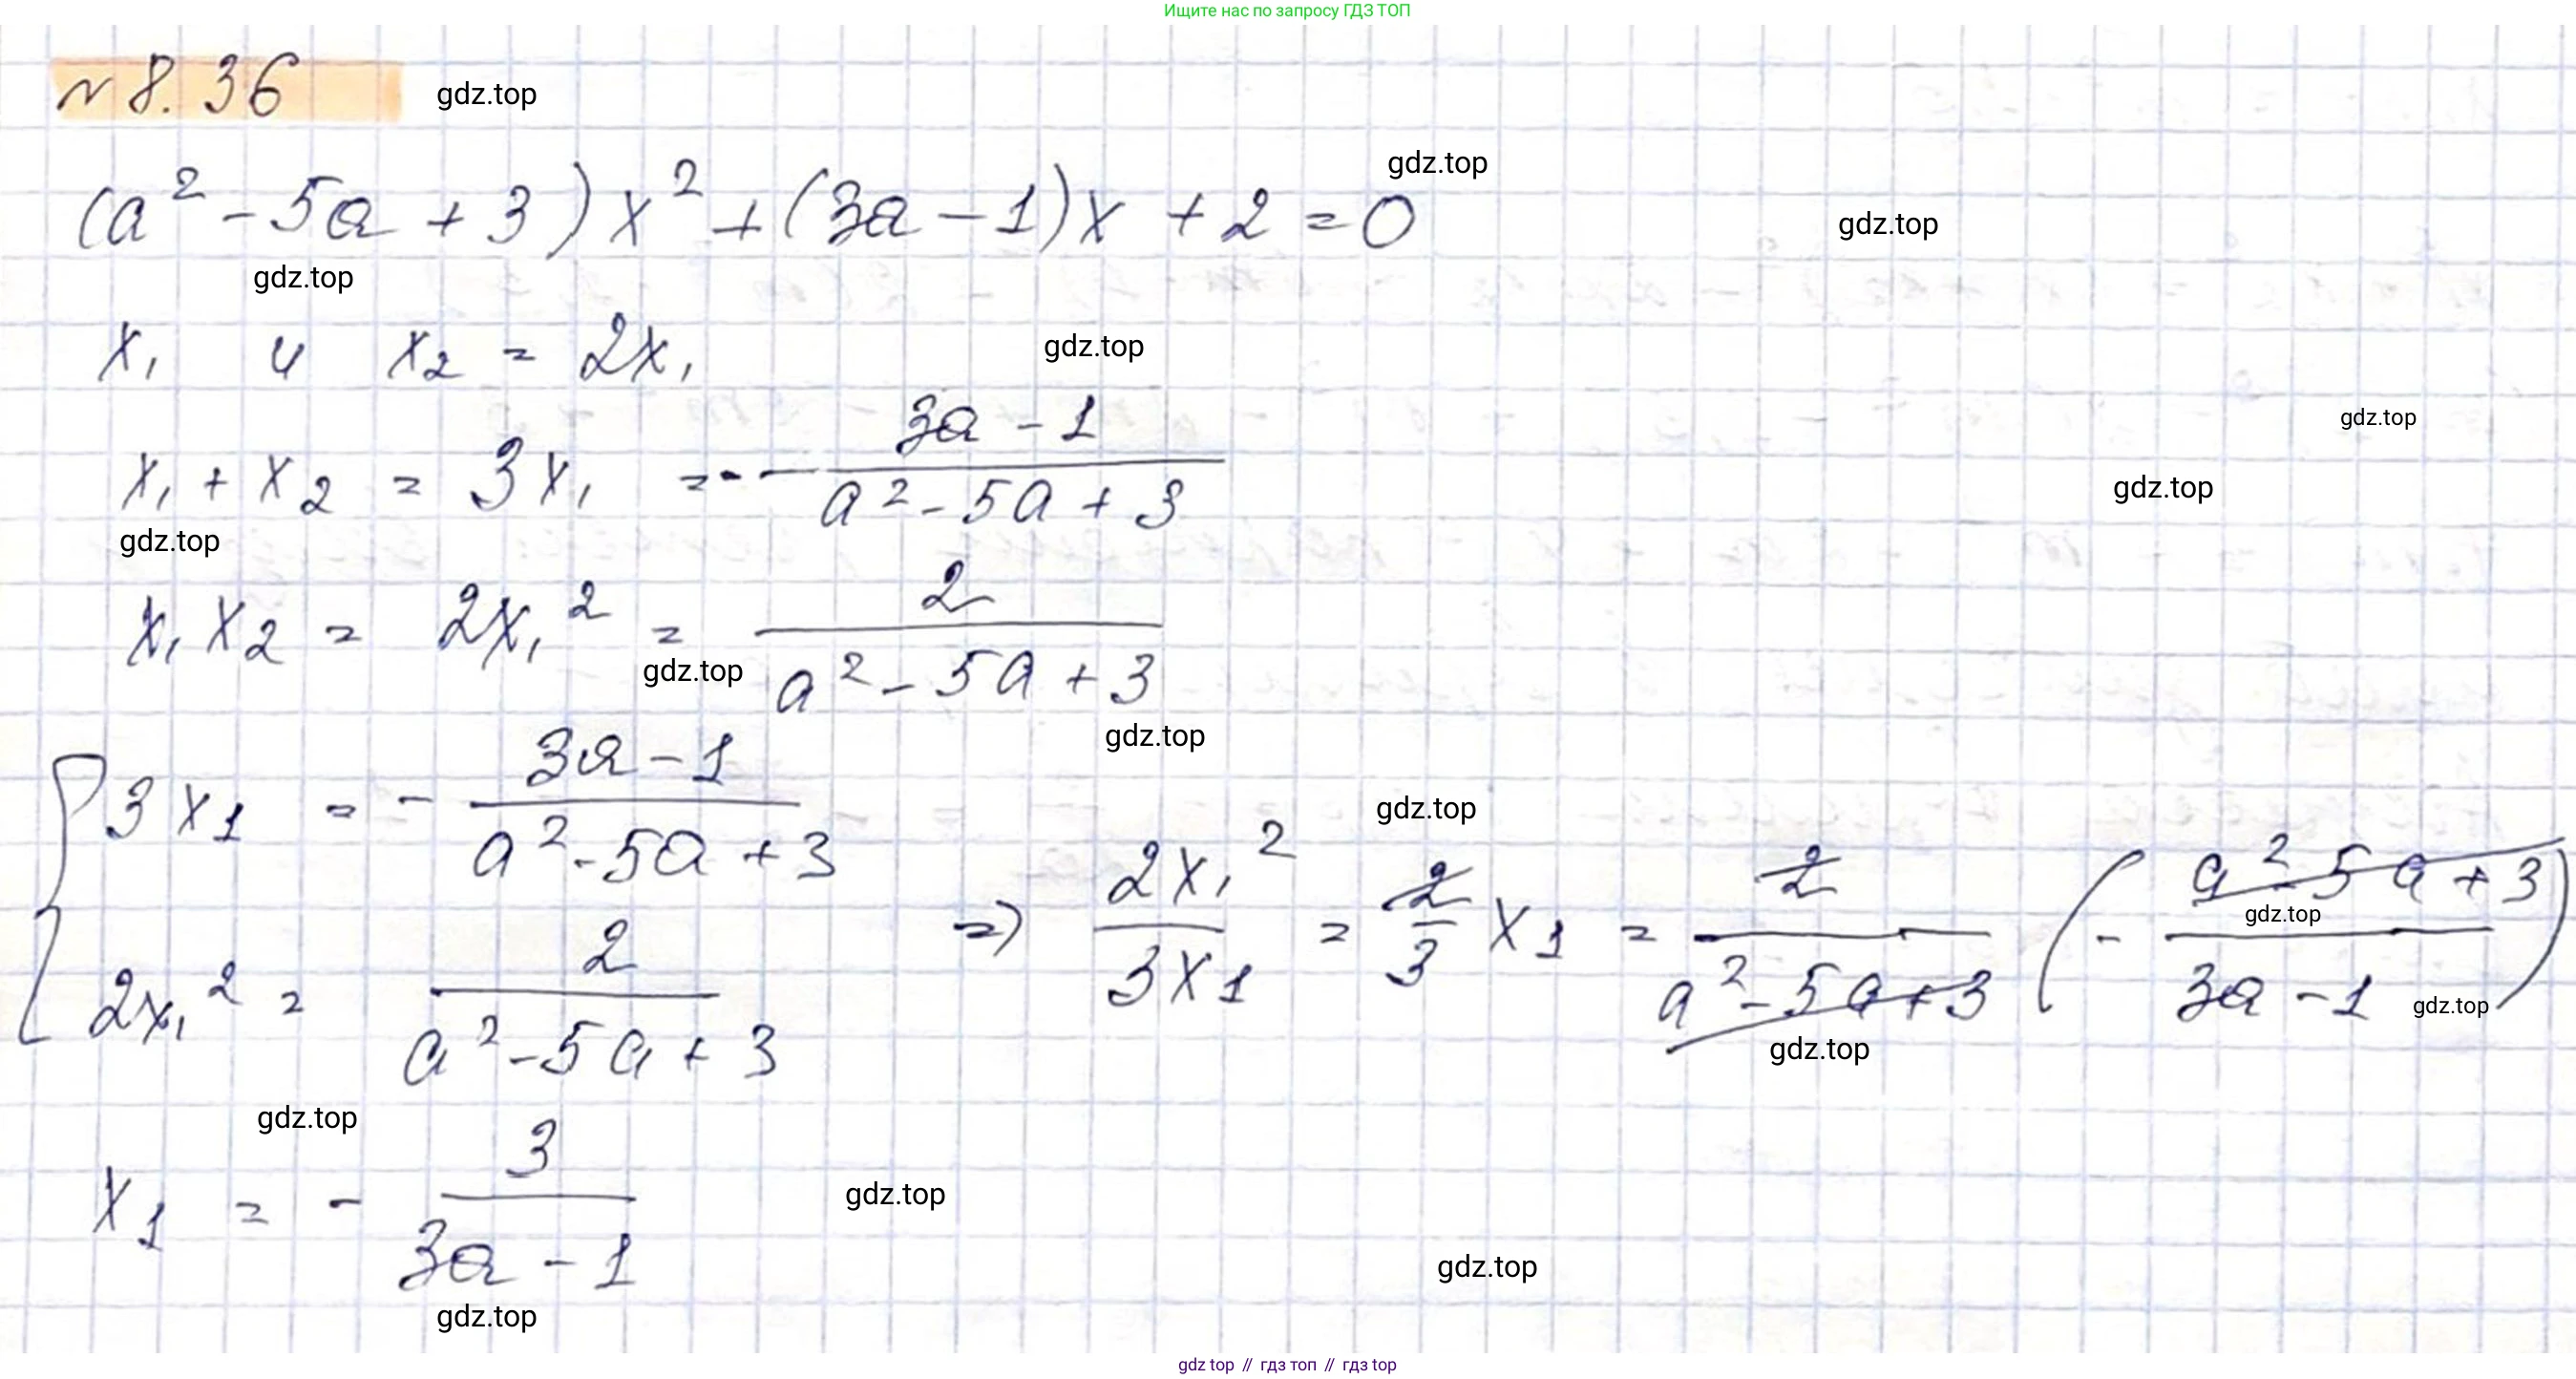 Ищите нас по запросу ГДЗ ТОП
N 8.36 gdz.top
gdz.top
(a² - 5a + 3)x² + (3a - 1)x + 2 = 0 gdz.top
gdz.top
x₁ и x₂ = 2x₁ gdz.top
gdz.top
x₁ + x₂ = 3x₁ = - (3a - 1)/(a² - 5a + 3) gdz.top
gdz.top
x₁x₂ = 2x₁² = 2/(a² - 5a + 3)
gdz.top
gdz.top
3x₁ = - (3a - 1)/(a² - 5a + 3)
gdz.top
2x₁² = 2/(a² - 5a + 3) => 2x₁²/3x₁ = 2/3 x₁ = 2/(a² - 5a + 3) (- (a² - 5a + 3)/(3a - 1))
gdz.top
gdz.top
gdz.top
gdz.top
x₁ = - 3/(3a - 1) gdz.top
gdz.top
gdz.top
gdz top // гдз топ // гдз top